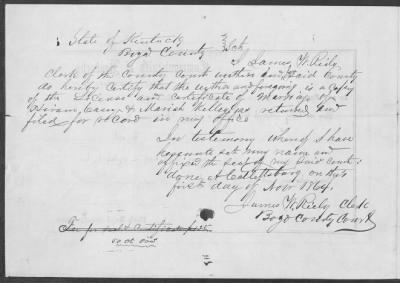 State of Kentucky
Boyd County Sct.
I James W. Reily
Clerk of the County Court within and said County
do hereby Certify that the within and foregoing is a Copy
of the License and Certificate of Marriage of
Hiram & as returned and
filed for Record in my office
In testimony whereof I have
hereunto set my name and
affixed the seal of my said court
done at Catlettsburg on this
first day of Nov 1864.
James W. Reily Clerk
Boyd County Court